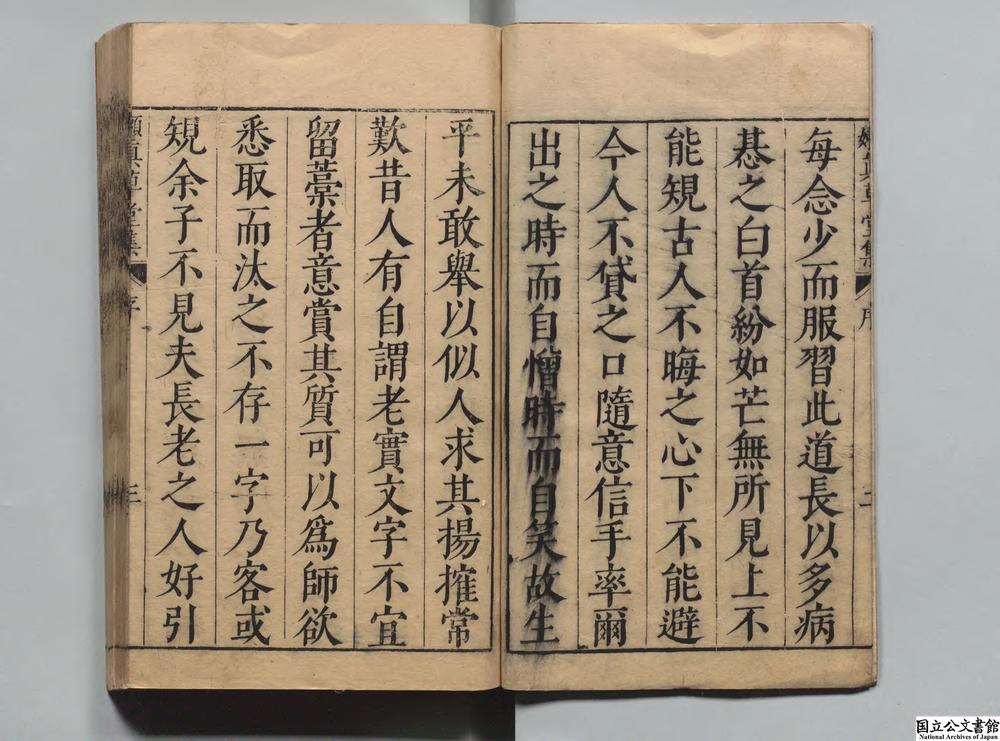 每念少而服習此道長以多病
惎之白首紛如芒無所見上不
能䂓古人不晦之心下不能避
今人不貸之口隨意信手率爾
出之時而自憎時而自笑故生
平未敢舉以似人求其揚搉常
歎昔人有自謂老實文字不宜
留藁者意賞其質可以爲師欲
悉取而汰之不存一字乃客或
䂓余子不見夫長老之人好引
序
三
国立公文書館
National Archives of Japan